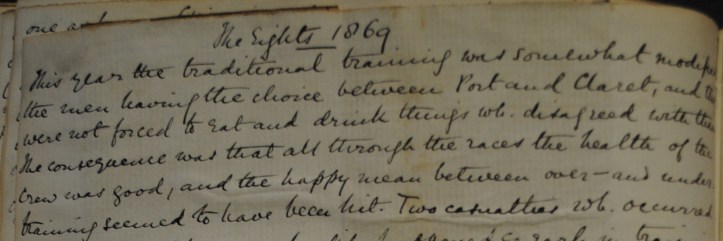 one
The Eights 1869
This year the traditional training was somewhat modified
the men having the choice between Port and Claret, and th
were not forced to eat and drink things wh. disagreed with them
The consequence was that all through the races the health of the
Crew was good, and the happy mean between over- and under
training seemed to have been hit. Two casualties wh. occurred